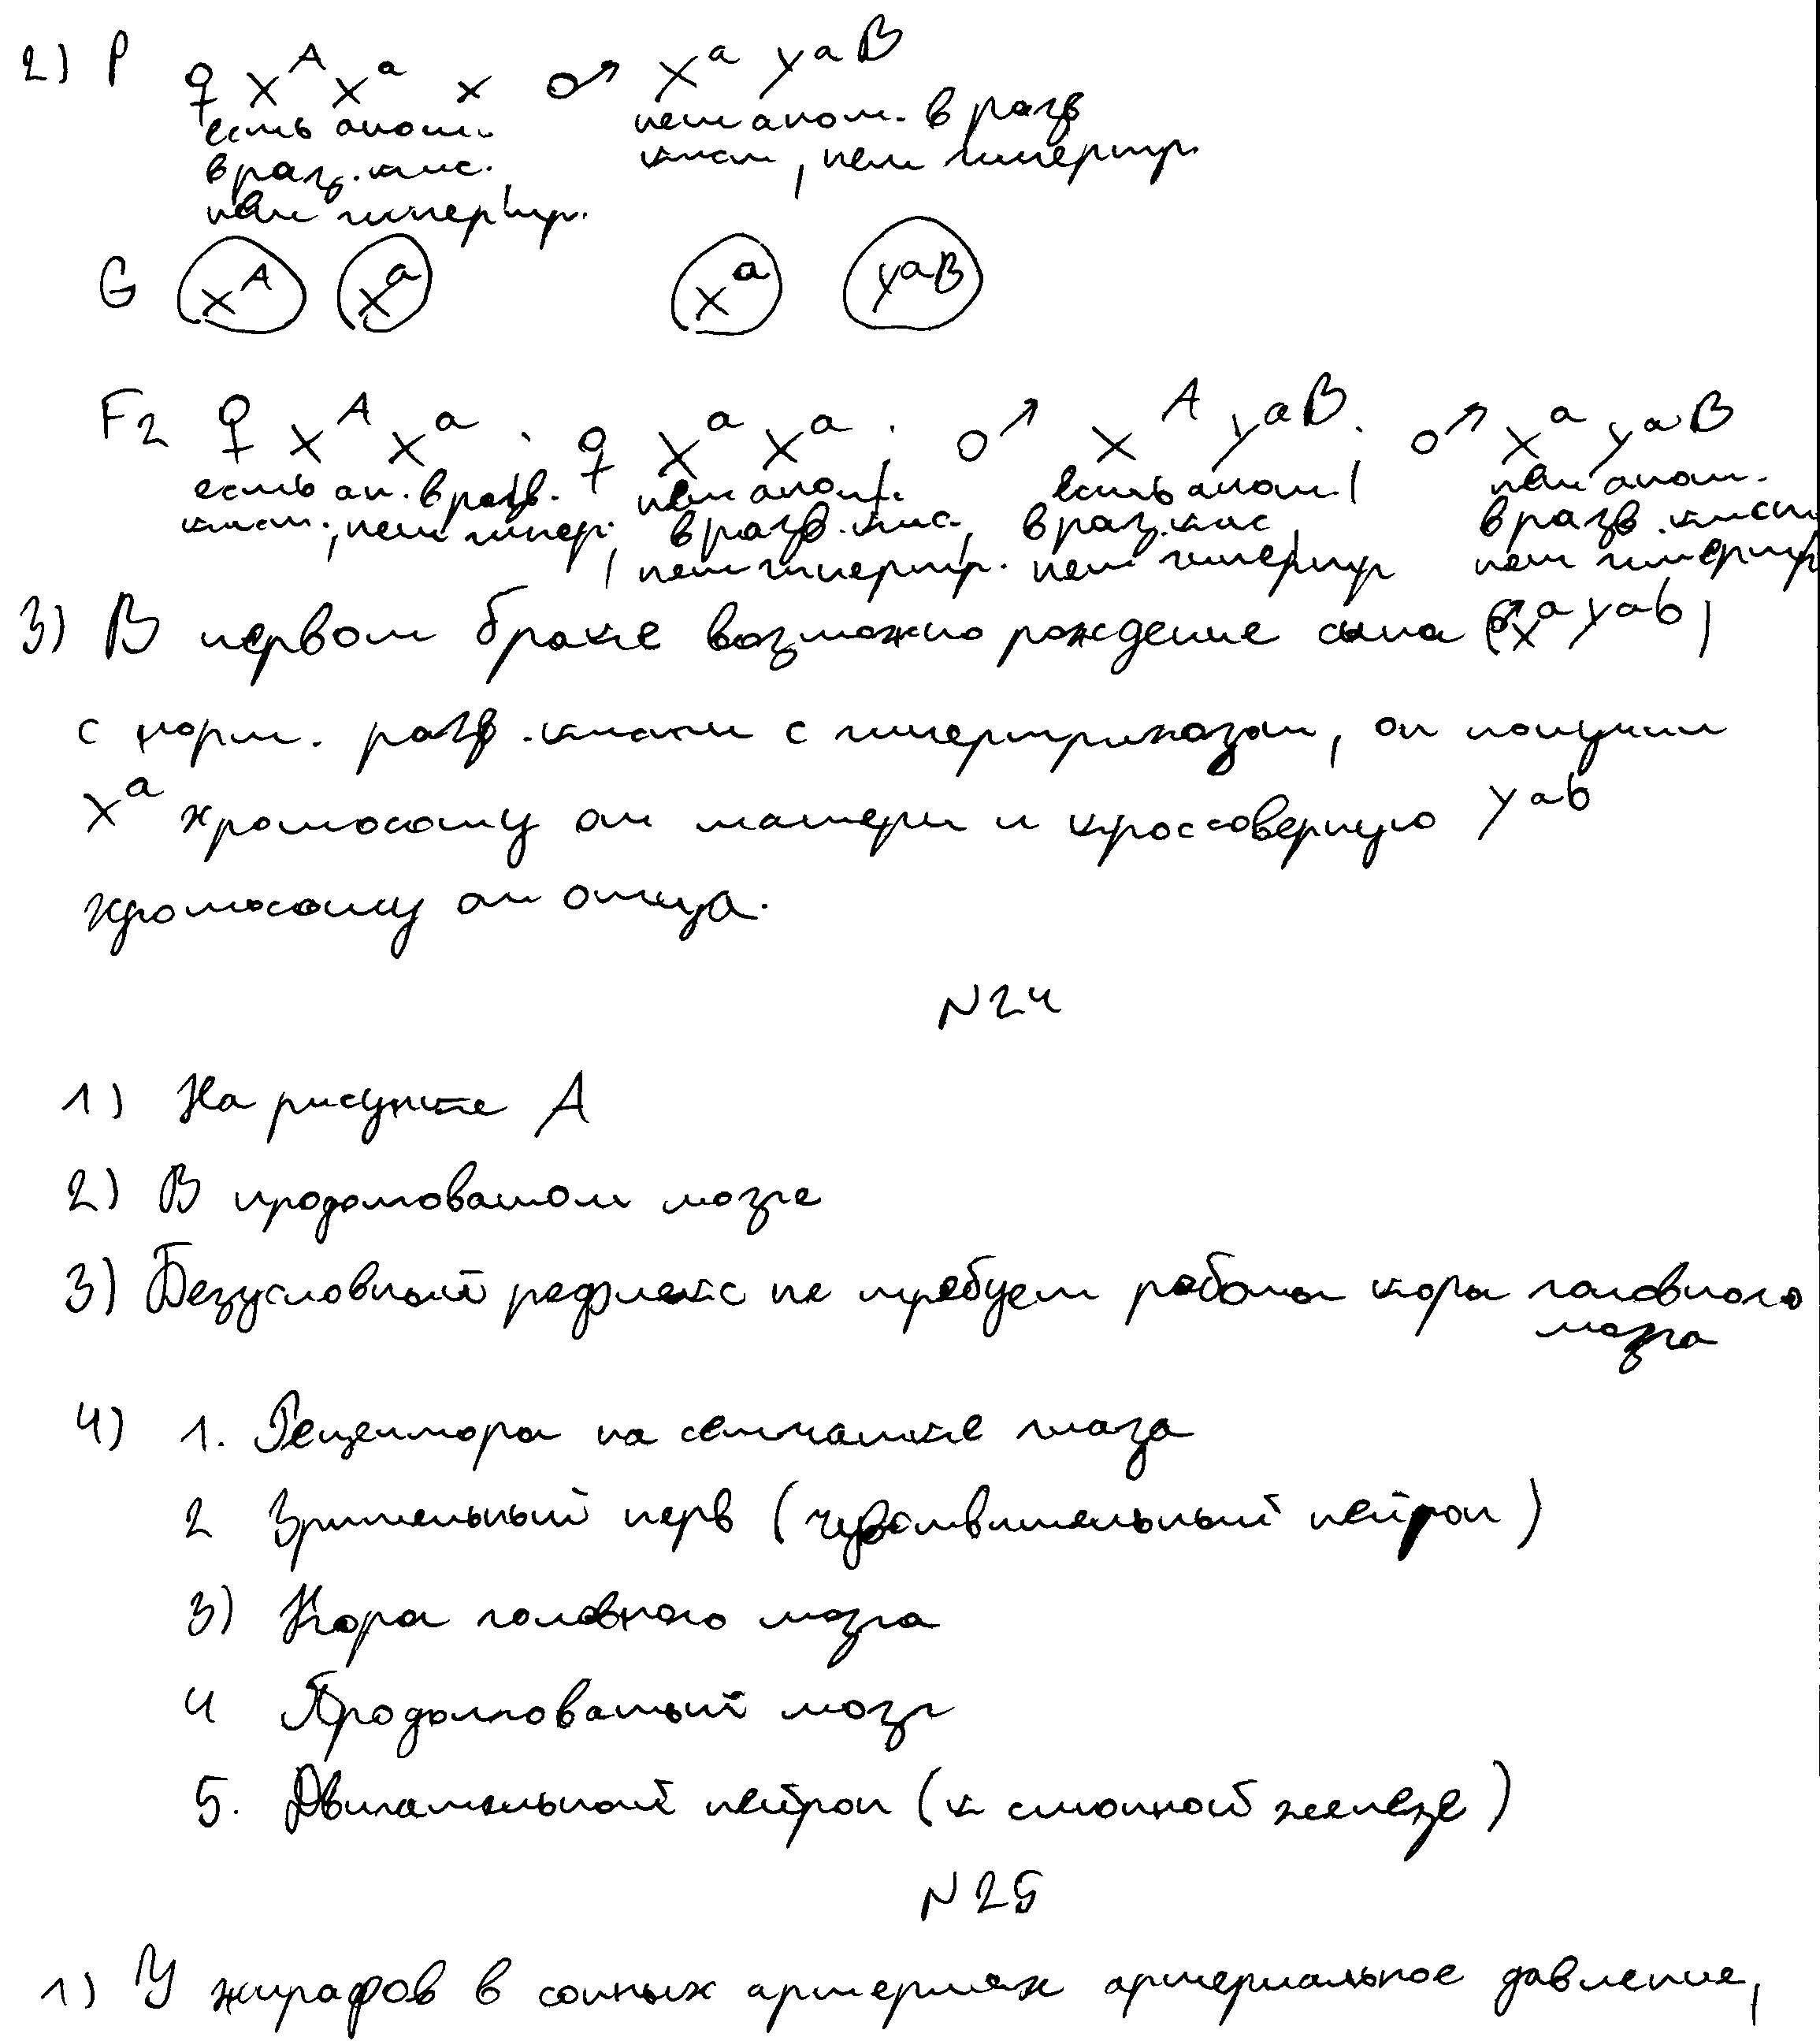 2) P ♀ X^A X^a × ♂ X^a Y^aB
есть аном. нет аном. в разв
в раз. кис. кист, нет гипертр.
нет гипертр.
G X^A X^a X^a Y^aB
F2 ♀ X^A X^a ; ♀ X^a X^a ; ♂ X^A Y^aB ; ♂ X^a Y^aB
есть ан. в разв. нет аном. есть аном. нет аном.
кист., нет гипер. в разв. кис, в раз. кис, в разв. кисти
нет гипертр. нет гипертр нет гипертр
3) В первом браке возможно рождение сына (♂X^a Y^ab)
с норм. разв. кисти с гипертрихозом, он получит
X^a хромосому от матери и кроссоверную Y^ab
хромосому от отца.
N24
1) На рисунке А
2) В продолговатом мозге
3) Безусловный рефлекс не требует работы коры головного
мозга
4) 1. Рецептора на сетчатке глаза
2 Зрительный нерв (чувствительный нейрон)
3) Кора головного мозга
4 Продолговатый мозг
5. Двигательный нейрон (к слюнной железе)
N25
1) У жирафов в сонных артериях артериальное давление,